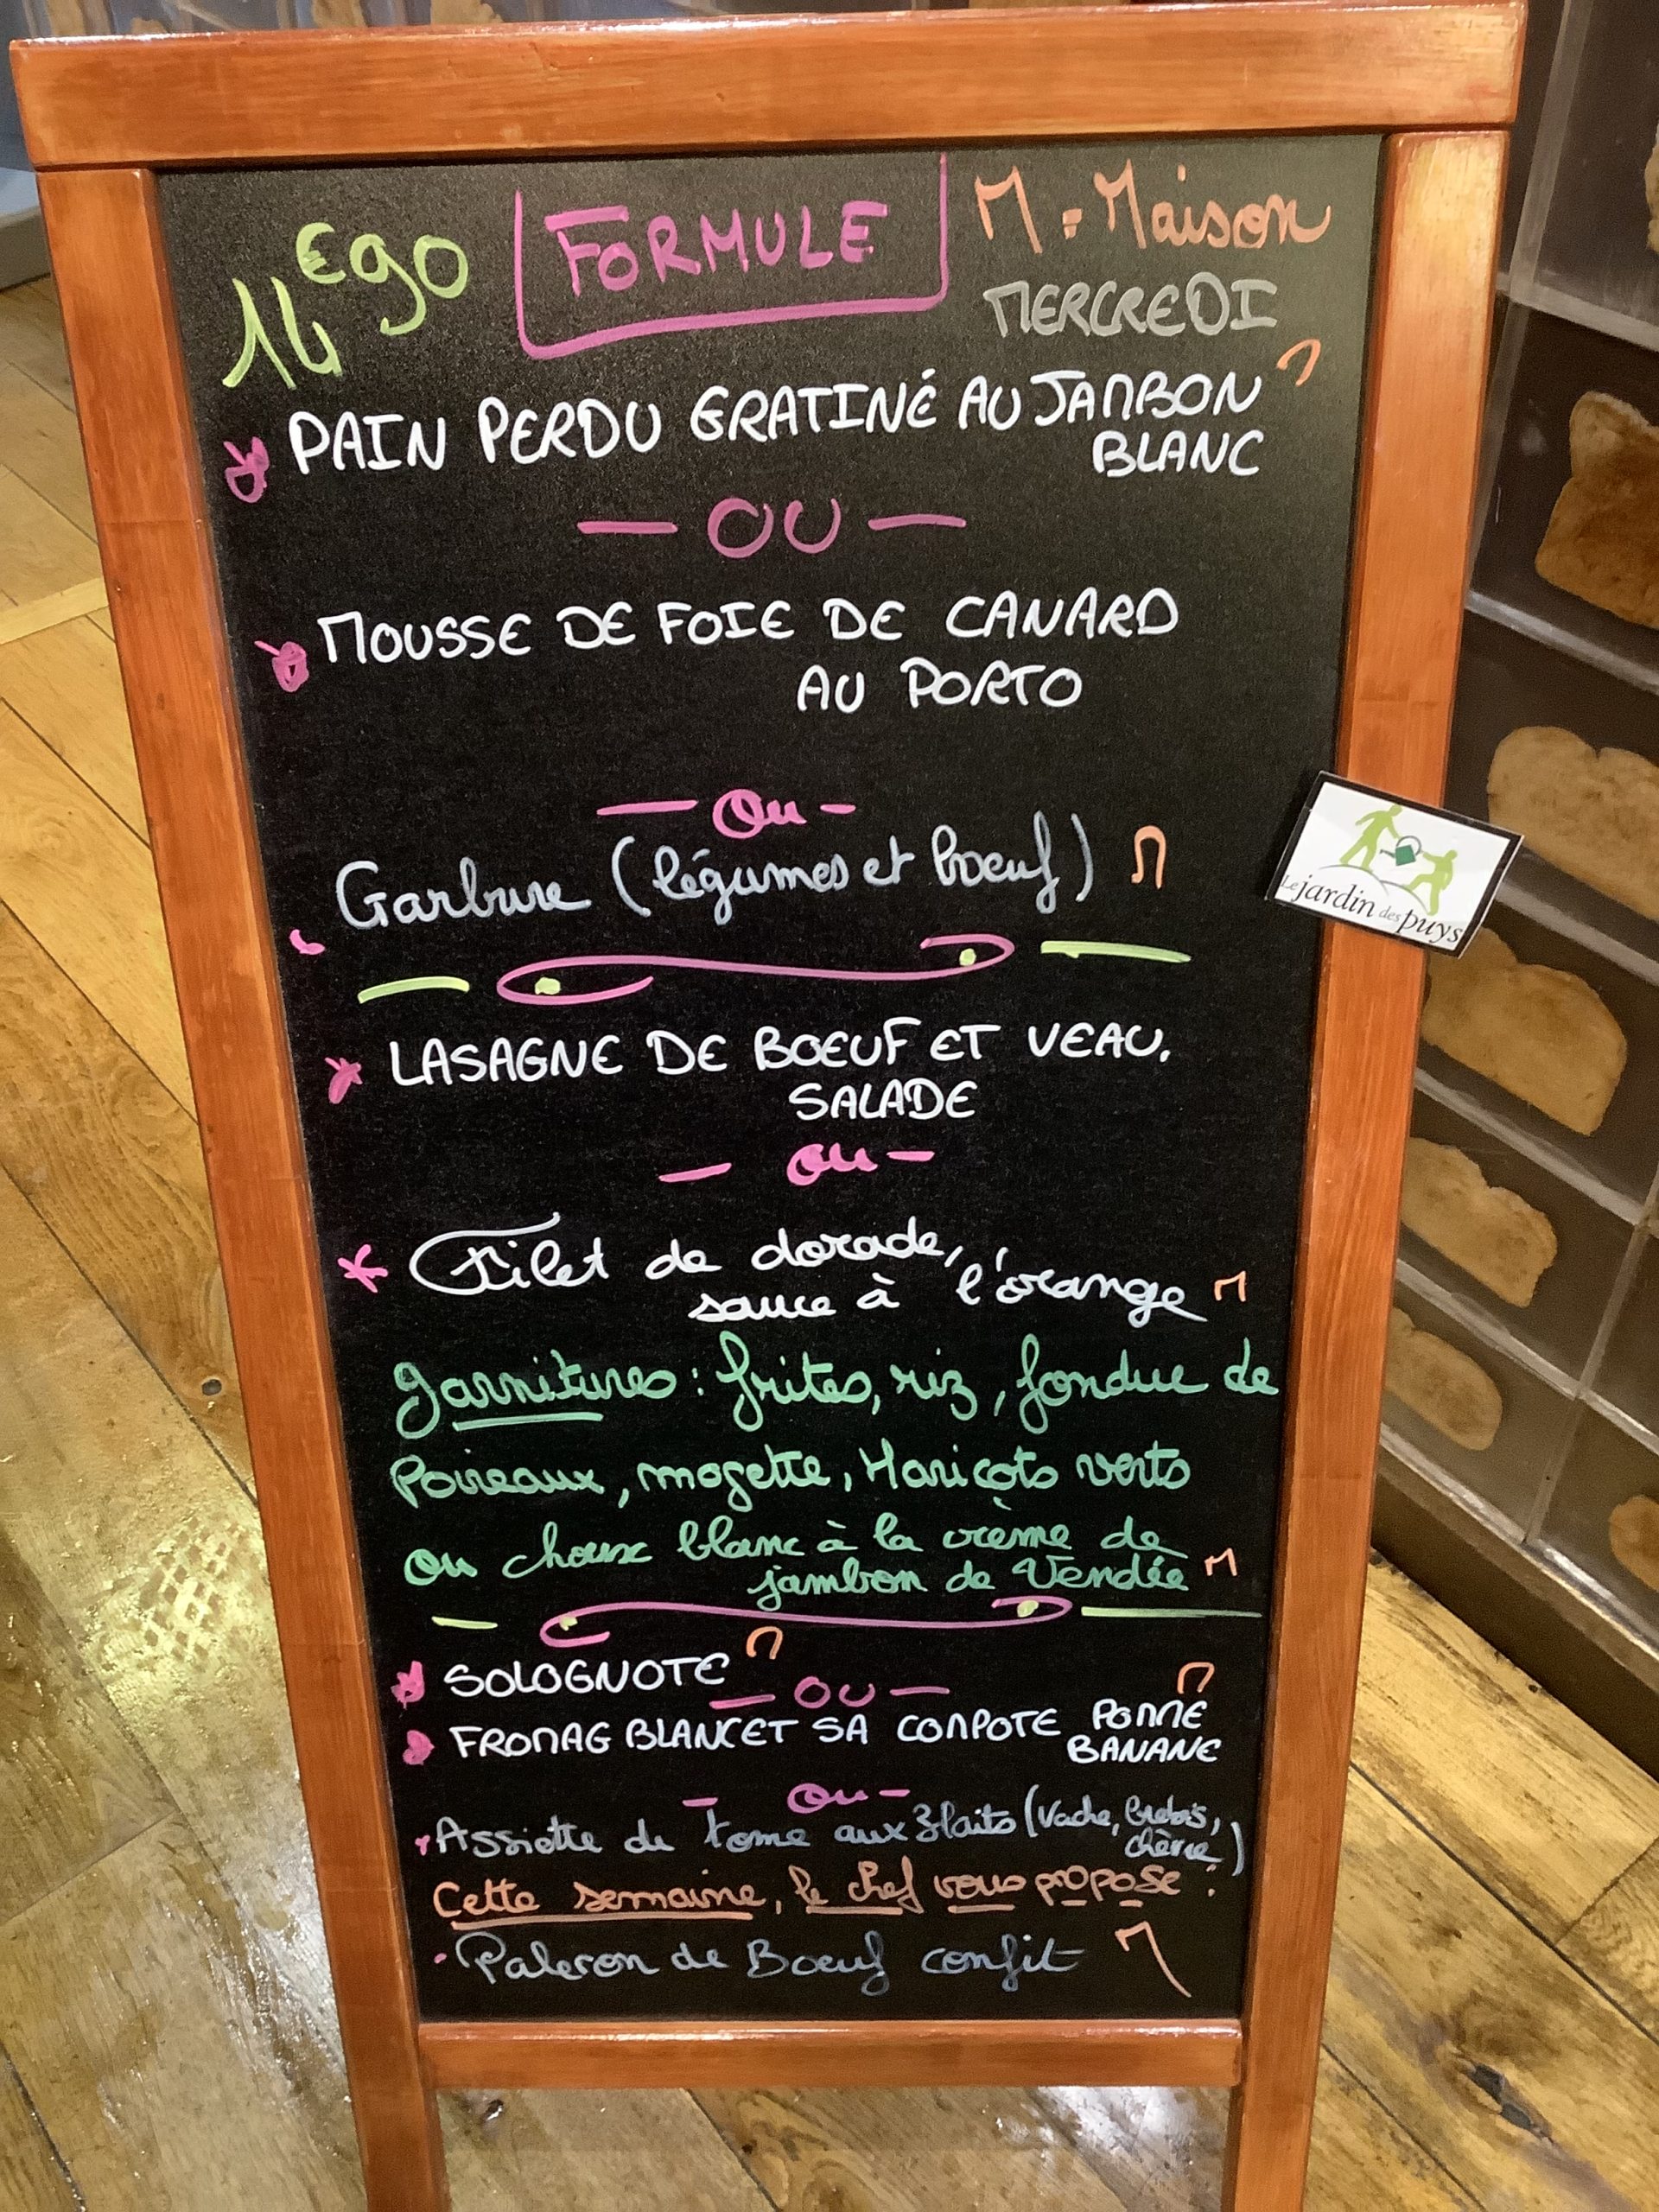 14€90
FORMULE
M = Maison
MERCREDI
PAIN PERDU GRATINÉ AU JAMBON M
BLANC
— OU —
MOUSSE DE FOIE DE CANARD
AU PORTO
— Ou —
Garbure (légumes et boeuf) M
LASAGNE DE BOEUF ET VEAU.
SALADE
— ou —
Filet de dorade,
sauce à l'orange M
Garnitures : frites, riz, fondue de
Poireaux, mogette, Haricots verts
ou choux blanc à la crème de
jambon de Vendée M
SOLOGNOTE M
— OU —
FROMAG BLANC ET SA COMPOTE POMME M
BANANE
— Ou —
Assiette de tome aux 3 laits (Vache, brebis,
chèvre)
Cette semaine, le chef vous propose :
Paleron de Boeuf confit M
Le jardin des puys